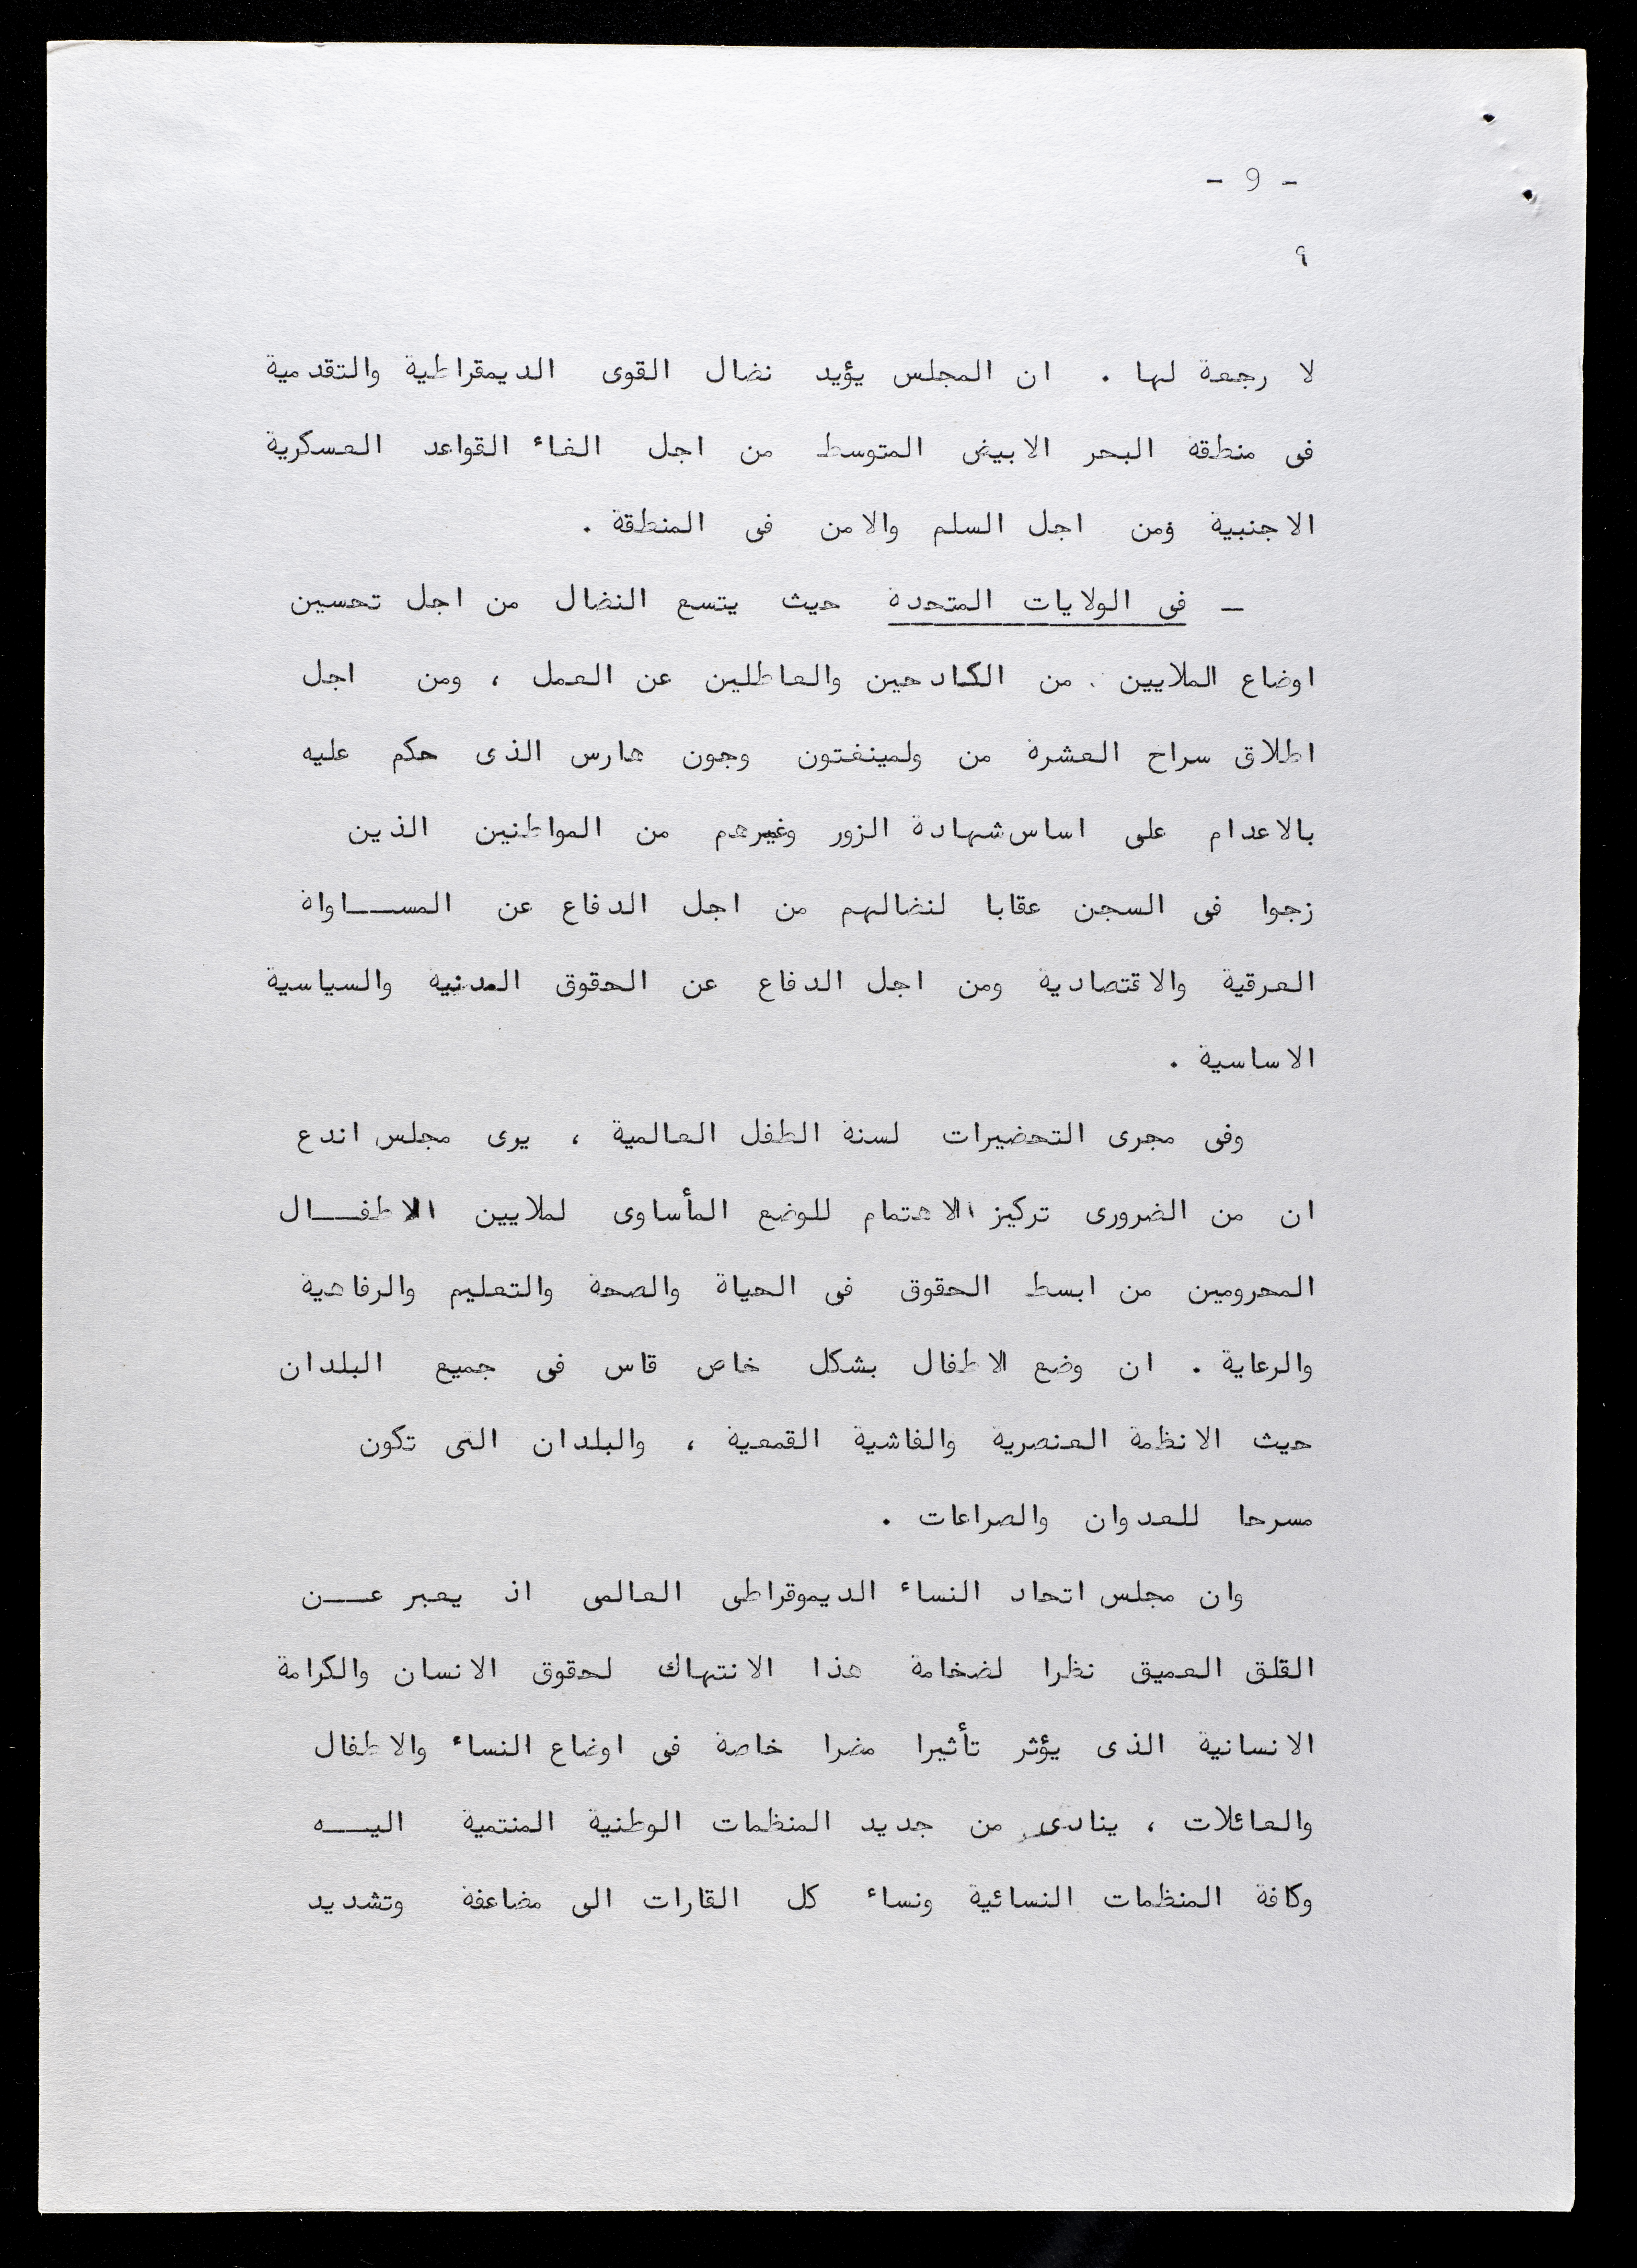 - 9 -
٩
لا رجعة لها . ان المجلس يؤيد نضال القوى الديمقراطية والتقدمية
فى منطقة البحر الابيض المتوسط من اجل الغاء القواعد العسكرية
الاجنبية ومن اجل السلم والامن فى المنطقة .
ـ فى الولايات المتحدة حيث يتسع النضال من اجل تحسين
اوضاع الملايين من الكادحين والعاطلين عن العمل ، ومن اجل
اطلاق سراح العشرة من ولمينغتون وجون هارس الذى حكم عليه
بالاعدام على اساس شهادة الزور وغيرهم من المواطنين الذين
زجوا فى السجن عقابا لنضالهم من اجل الدفاع عن المســـاواة
العرقية والاقتصادية ومن اجل الدفاع عن الحقوق المدنية والسياسية
الاساسية .
وفى مجرى التحضيرات لسنة الطفل العالمية ، يرى مجلس اندع
ان من الضرورى تركيز الاهتمام للوضع المأساوى لملايين الاطفـــال
المحرومين من ابسط الحقوق فى الحياة والصحة والتعليم والرفاهية
والرعاية . ان وضع الاطفال بشكل خاص قاس فى جميع البلدان
حيث الانظمة العنصرية والفاشية القمعية ، والبلدان التى تكون
مسرحا للعدوان والصراعات .
وان مجلس اتحاد النساء الديموقراطى العالمى اذ يعبر عـــن
القلق العميق نظرا لضخامة هذا الانتهاك لحقوق الانسان والكرامة
الانسانية الذى يؤثر تأثيرا مضرا خاصة فى اوضاع النساء والاطفال
والعائلات ، ينادى من جديد المنظمات الوطنية المنتمية اليـــه
وكافة المنظمات النسائية ونساء كل القارات الى مضاعفة وتشديد